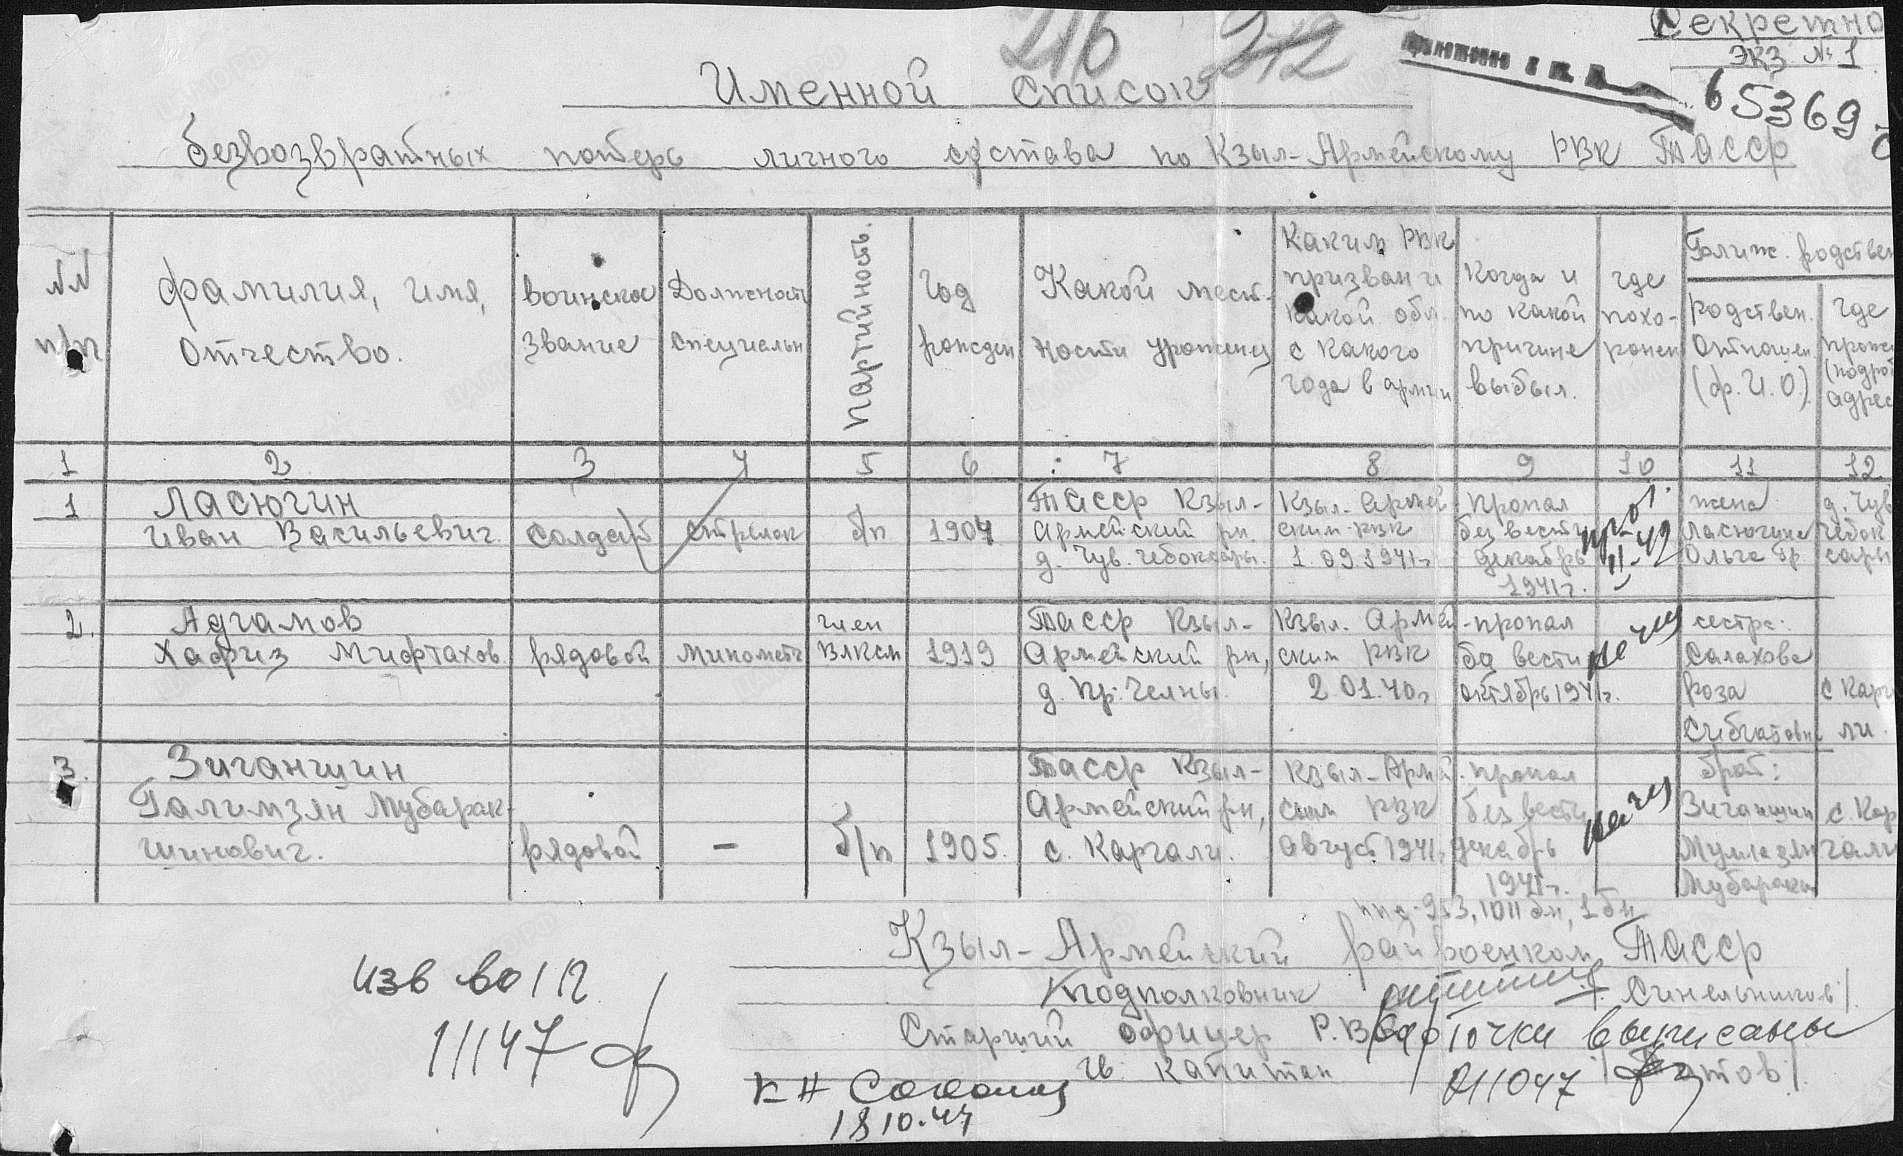 216 212
Секретно
Экз № 1
65369с
Именной список
безвозвратных потерь личного состава по Кзыл-Армейскому РВК ТАССР
№№ п/п
фамилия, имя, отчество.
воинское звание
Должность специальн
партийность.
Год рожден
Какой мест-ности уроженец
Каким РВК призван и какой обл. с какого года в армии
Когда и по какой причине выбыл.
где похо-ронен
Ближ. родствен
родствен. отношен (ф.И.О)
где прожи (подроб адрес
1 2 3 4 5 6 7 8 9 10 11 12
1 Ласюгин Тасср Кзыл- Кзыл-Армей Пропал жена д. Чув
Иван Васильевич. солдат стрелок б/п 1904 Армейский рн. ским РВК без вести Ласюгина Чебок
д. Чув. Чебоксары. 1.09.1941г декабрь Ольга Гр. сары
1941г.
2. Адгамов член Тасср Кзыл- Кзыл. Армей -пропал сестра:
Хафиз Мифтахов рядовой минометч ВЛКСМ 1919 Армейский рн, ским РВК без вести Салахова
д. Пр. Челны. 2.01.40г октябрь 1941г. Роза с Карга
Сибгатовна ли.
3. Зиганшин Тасср Кзыл- Кзыл-Армей -пропал брат:
Галимзян Мубарак- Армейский рн, ским РВК без вести Зиганшин с. Кар
шинович. рядовой — б/п 1905. с. Каргали. Август 1941г декабрь Муллазян гали
1941г. Мубаракш
ппс-953, 1011 бп, 1 бн
Кзыл-Армейский райвоенком ТАССР
Подполковник /Синельников/.
Старший офицер Р.В.К. Карточки выписаны
гв. капитан 211047
Изв во 1/12
11147
18 10.47